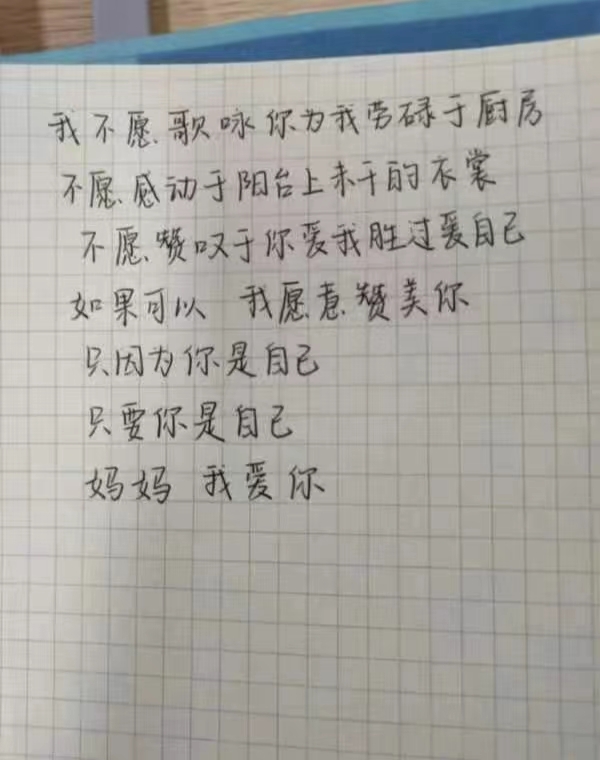 我不愿歌咏你为我劳碌于厨房
不愿感动于阳台上未干的衣裳
不愿赞叹于你爱我胜过爱自己
如果可以 我愿意赞美你
只因为你是自己
只要你是自己
妈妈 我爱你